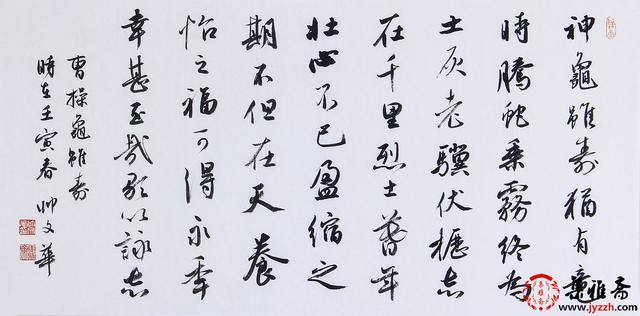 神龜雖壽猶有竟
時騰蛇乘霧終為
土灰老驥伏櫪志
在千里烈士暮年
壯心不已盈縮之
期不但在天養
怡之福可得永年
幸甚至哉歌以詠志
曹操龜雖壽
時在壬寅春帅文華
雅斋
www.jyzzh.com